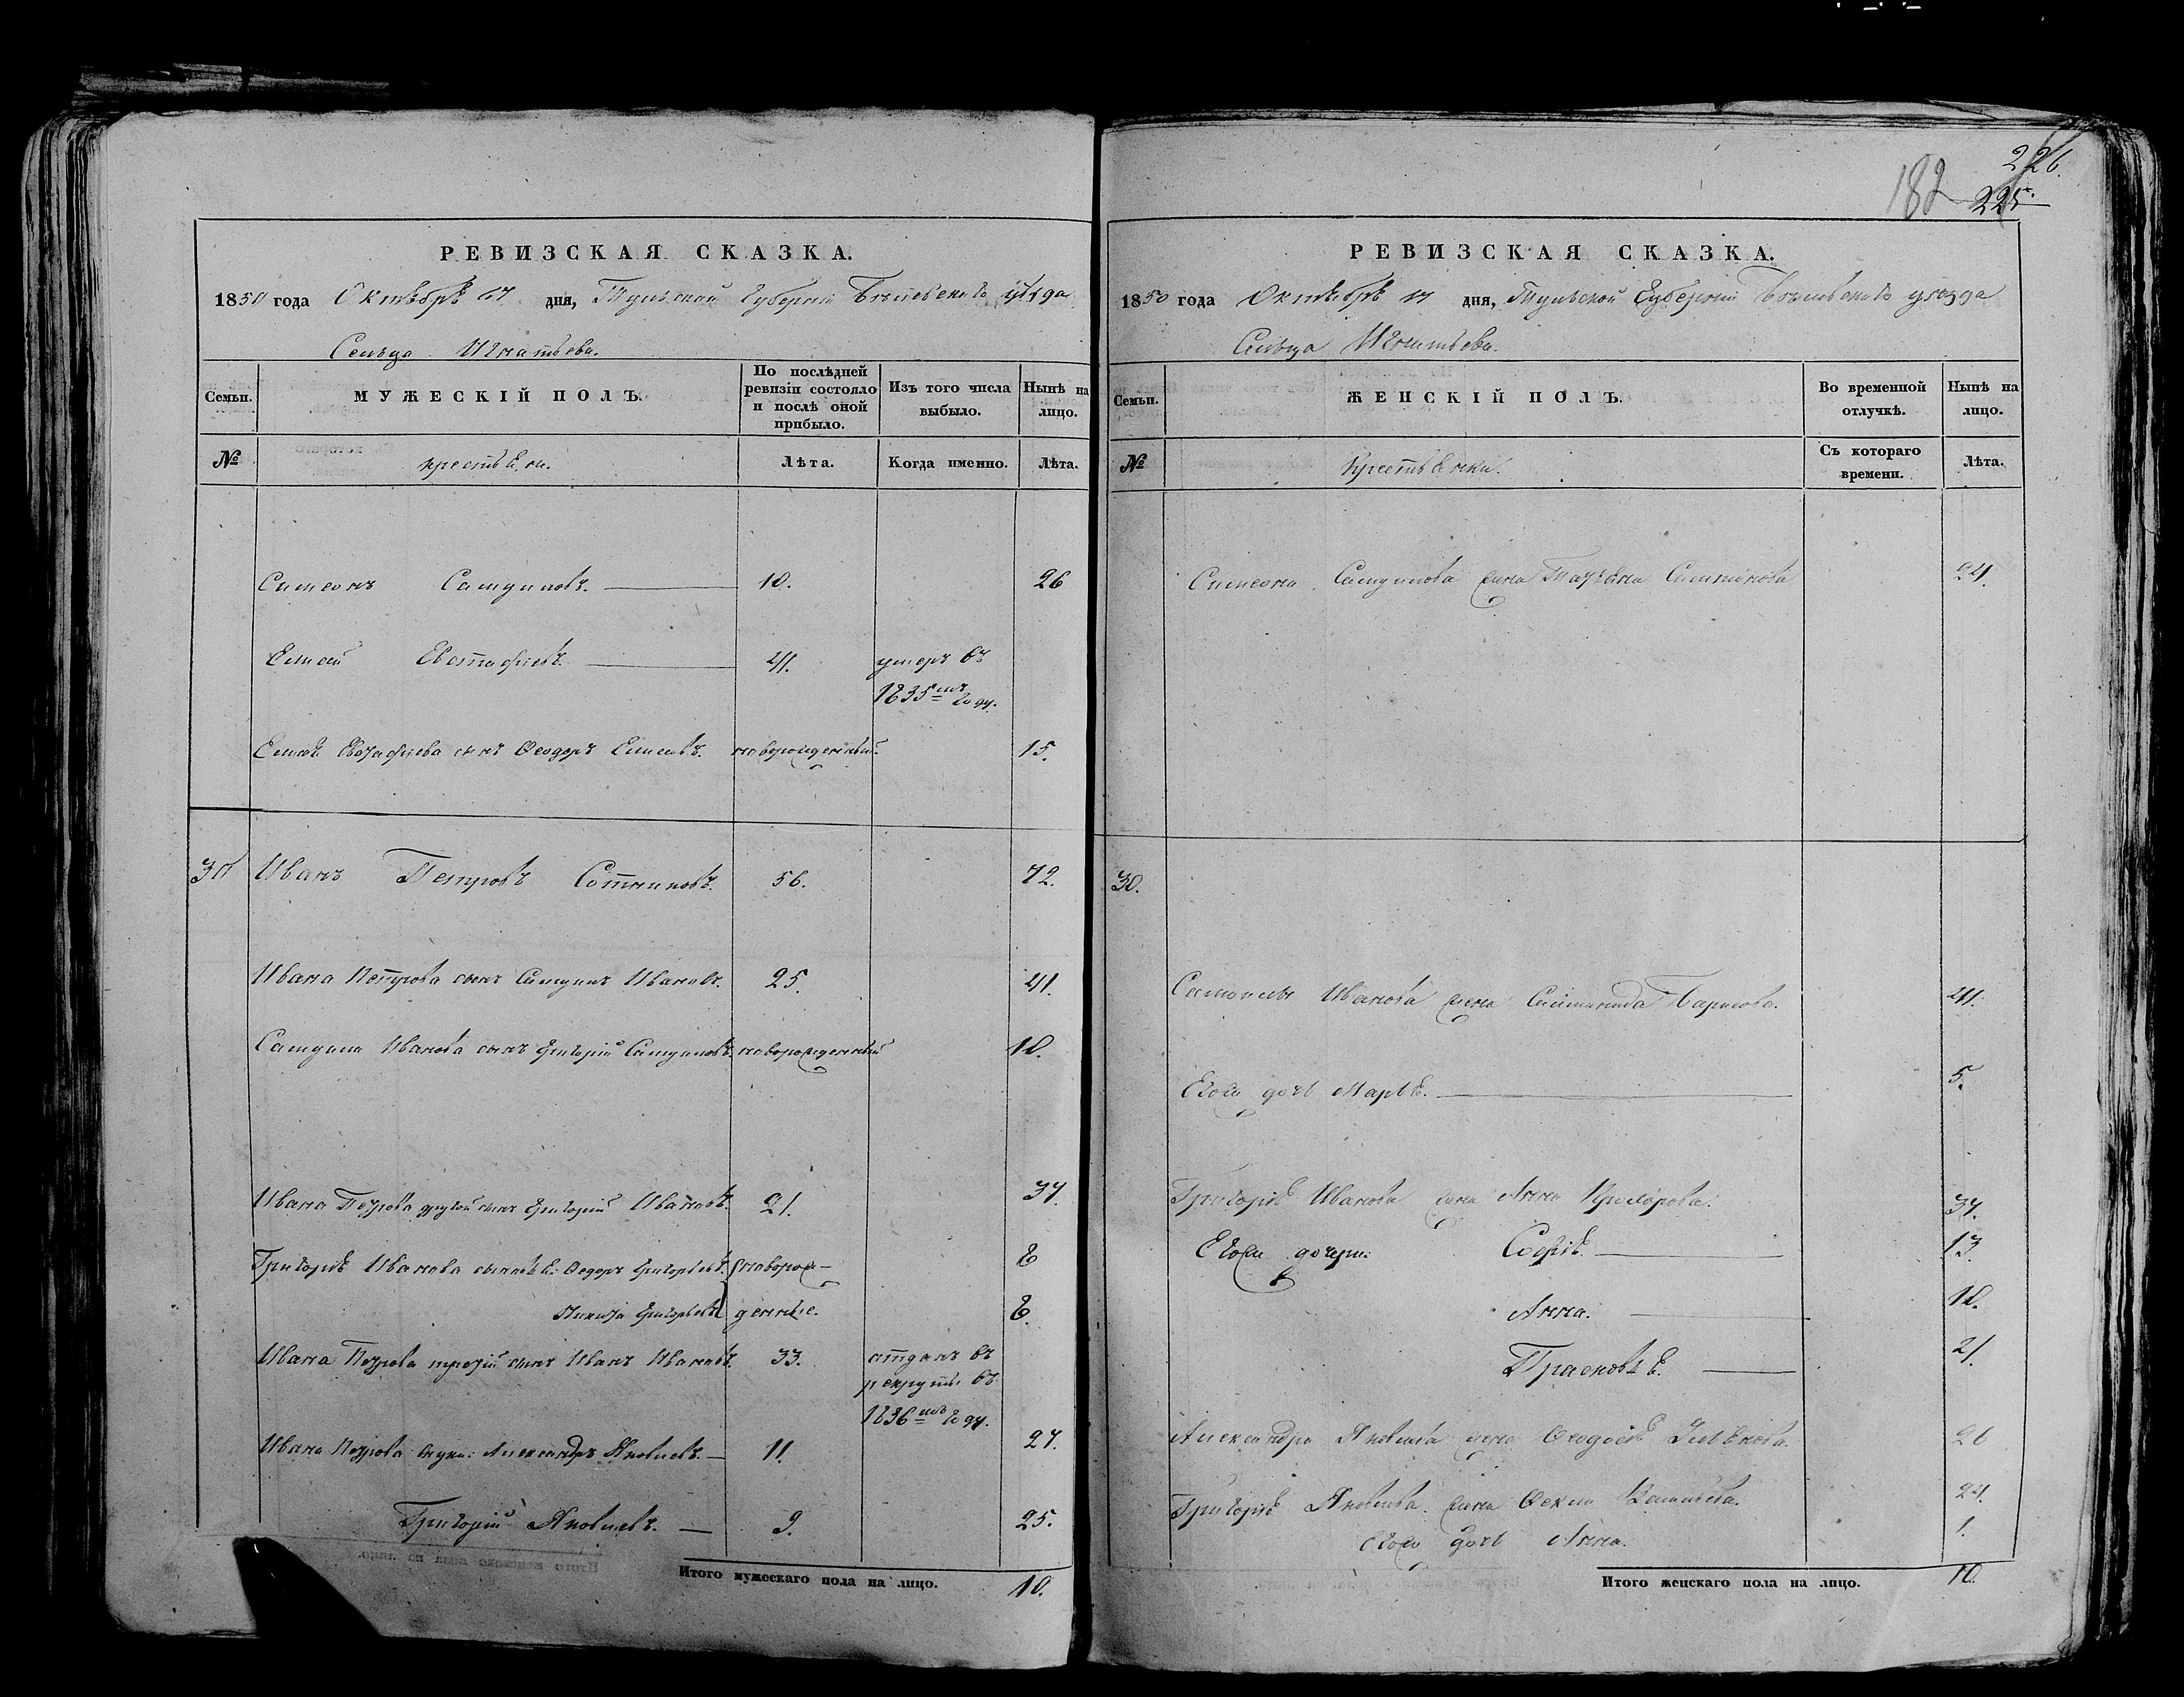 226.
182 225.
РЕВИЗСКАЯ СКАЗКА.
1850 года Октября 17 дня, Тульской Губернии Бѣлевскаго уѣзда
Сельца Игнатьева.
Семьи. МУЖЕСКІЙ ПОЛЪ. По послѣдней ревизіи состояло и послѣ оной прибыло. Изъ того числа выбыло. Нынѣ на лицо.
№ крестьяне. Лѣта. Когда именно. Лѣта.
Симеонъ Самуиловъ. 10. 26
Елисей Евстафьевъ. 41. умеръ въ
1835мъ году.
Елисея Евстафьева сынъ Феодоръ Елисеевъ. новорожденный. 15.
30 Иванъ Петровъ Сотниковъ. 56. 72.
Ивана Петрова сынъ Самуилъ Ивановъ. 25. 41.
Самуила Иванова сынъ Григорій Самуиловъ. новорожденный 10.
Ивана Петрова другой сынъ Григорій Ивановъ. 21. 37.
Григорія Иванова сыновья: Федоръ Григорьевъ. новорож-
8
Никита Григорьевъ денные. 8.
Ивана Петрова третій сынъ Иванъ Ивановъ. 33. отданъ въ
рекруты въ
1836мъ году.
Ивана Петрова внуки: Александръ Яковлевъ. 11. 27.
Григорій Яковлевъ. 9. 25.
Итого мужескаго пола на лицо. 10.
РЕВИЗСКАЯ СКАЗКА.
1850 года Октября 17 дня, Тульской Губернии Бѣлевскаго уѣзда
Сельца Игнатьева.
Семьи. ЖЕНСКІЙ ПОЛЪ. Во временной отлучкѣ. Нынѣ на лицо.
№ Крестьянки. Съ котораго времени. Лѣта.
Симеона Самуилова жена Татьяна 24.
30.
Самоила Иванова жена Борисова. 41.
Его дочь Марья. 5.
Григорія Иванова жена Анна 37.
Его дочери: Софія. 13
Анна. 10.
Прасковья. 2/.
Александра Яковлева жена Феодосія 26
Григорія Яковлева жена Фекла 24.
Его дочь Анна. 1.
Итого женскаго пола на лицо. 10